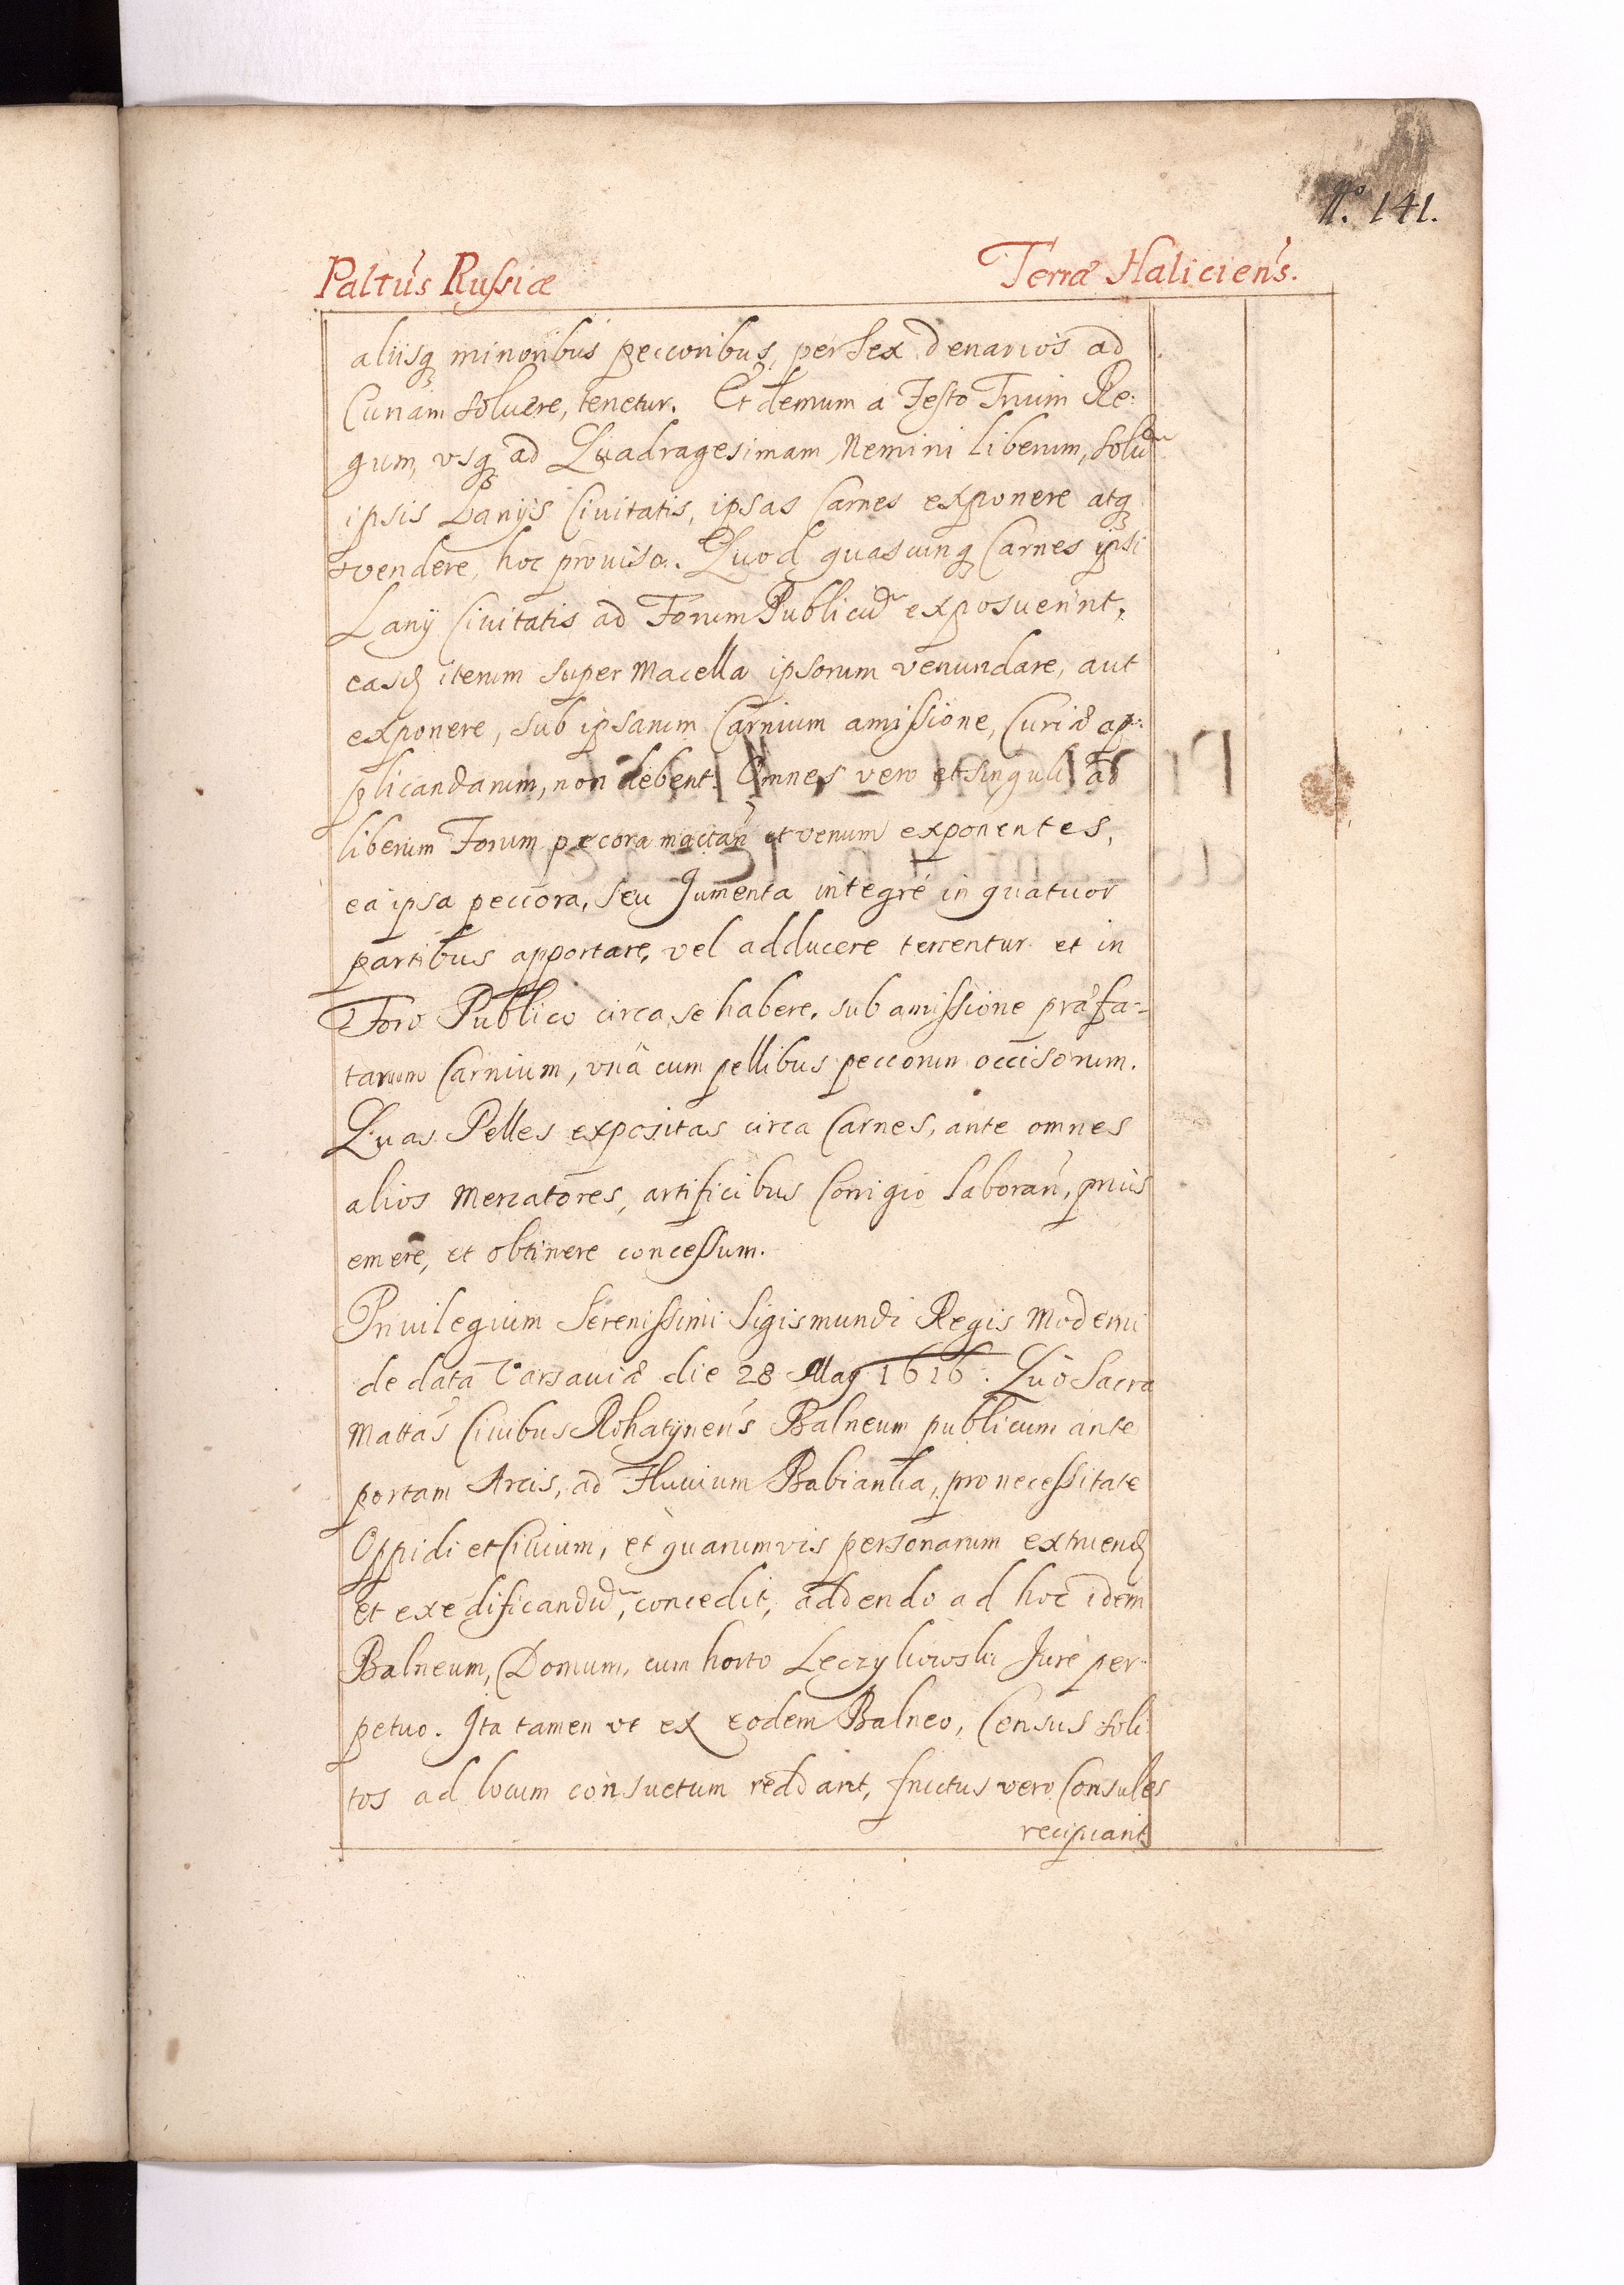 No. 141.
Paltûs Russiæ Terræ Haliciens̃.
aliisq̃ minoribus peccoribus, per Sex denarios ad
Curiam soluere, tenetur. Et demum à Festo Trium Re:
gum, vsq̃ ad Quadragesimam Nemini liberum, solũ
ipsis Lanijs Ciuitatis, ipsas Carnes exponere atq̃
vendere, hoc prouiso. Quod quascunq̃ Carnes ipsi
Lanij Ciuitatis ad Forum Publicũ exposuerint,
easd̃ iterum super Macella ipsorum venundare, aut
exponere, sub ipsarum Carnium amissione, Curiæ ap:
plicandarum, non debent. Omnes vero et singuli ad
liberum Forum pecora mactañ et venum exponentes,
ea ipsa peccora, seu Jumenta integrè in quatuor
partibus apportare, vel adducere tenentur et in
Foro Publico circa se habere, sub amissione præfa-
tarum Carnium, vnà cum pellibus peccorum occisorum.
Quas Pelles expositas circa Carnes, ante omnes
alios Mercatores, artificibus Corrigio laborañ, priùs
emere, et obtinere concessum.
Priuilegium Serenissimi Sigismundi Regis Moderni
de data Varsauiæ die 28 May 1616. Quò Sacra
Mattas̃ Ciuibus Rohatynens̃ Balneum publicum ante
portam Arcis, ad Fluuium Babianka, pro necessitate
Oppidi et Ciuium, et quarumvis personarum extruend̃
et exedificandũ, concedit, addendo ad hoc idem
Balneum, Domum, cum horto Lęczykowski Jure per-
petuo. Ita tamen vt ex eodem Balneo, Census soli
tos ad locum consuetum reddant, fructus vero Consules
recipiant